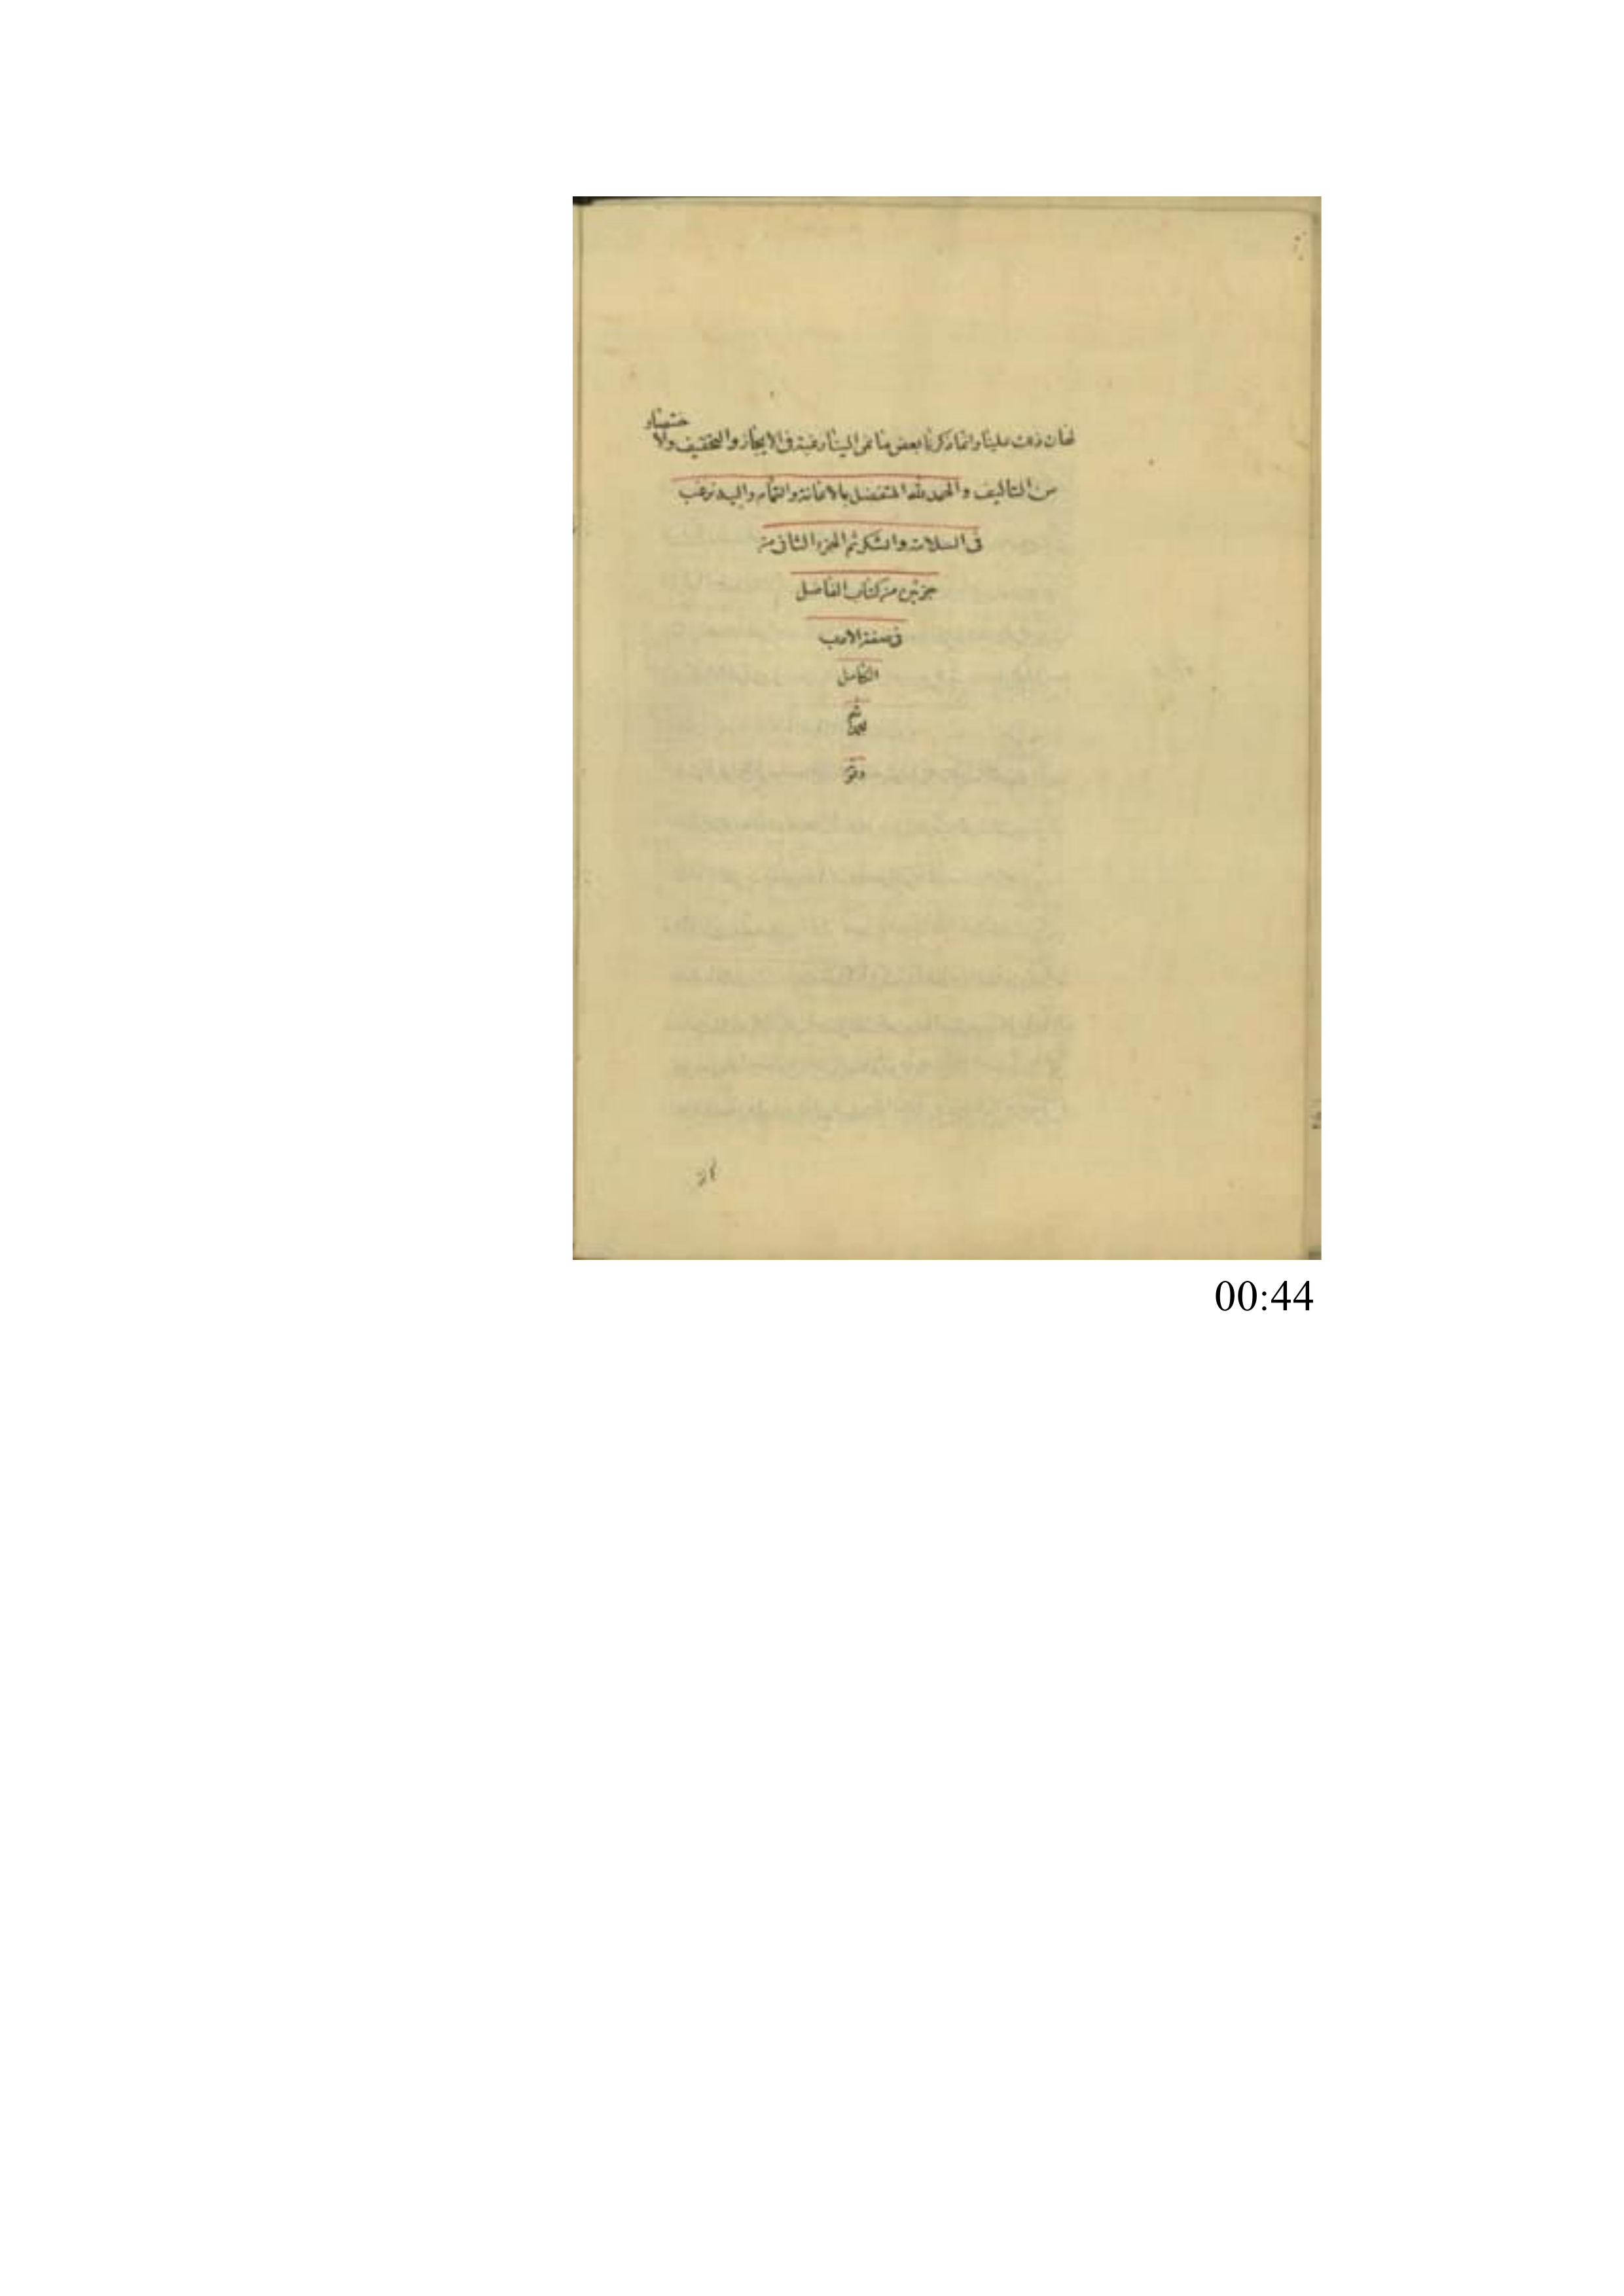 وانما ذكرنا بعض ما فى الينا رغبة فى الايجاز والتخفيف ولا
ختصار
من التاليف والحمد لله المتفضل بالاعانة والتمام واليه نرغب
فى السلامة والشكر تم الجزء الثانى من
جزئين من كتاب الفاضل
فى صفة الادب
الكامل
تم
00:44